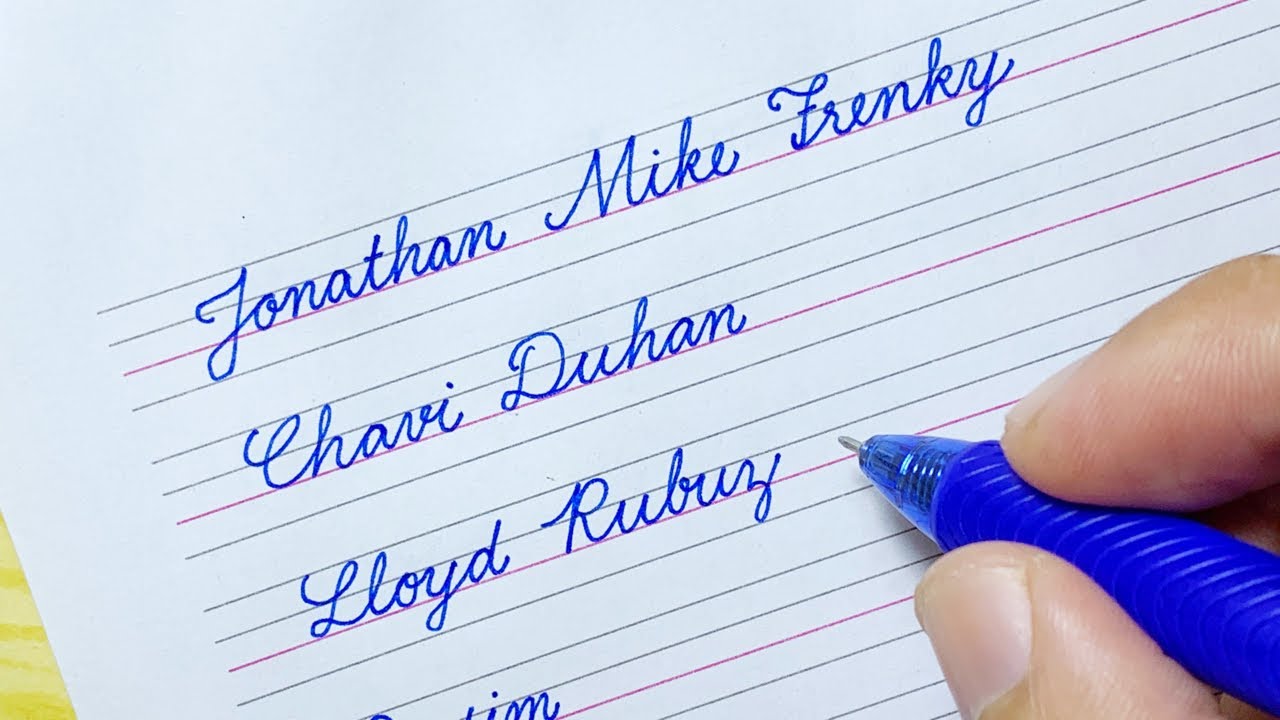 Jonathan Mike Frenky
Chavi Duhan
Lloyd Rubuz